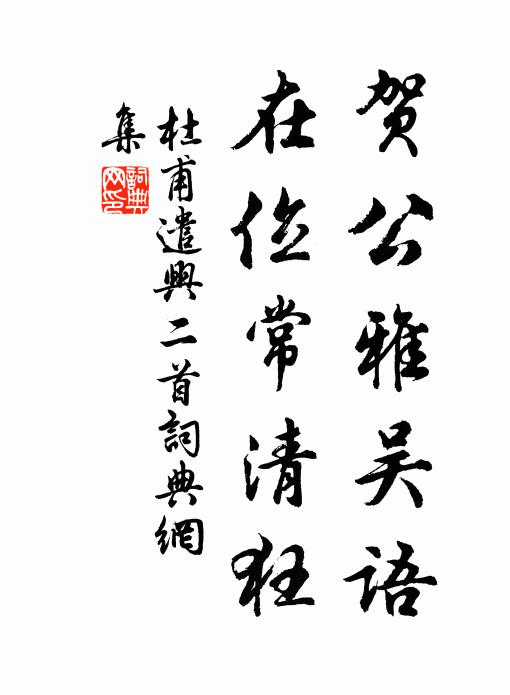 贺公雅吴语
在位常清狂
杜甫遣興二首詞典網
集
詞典
网印